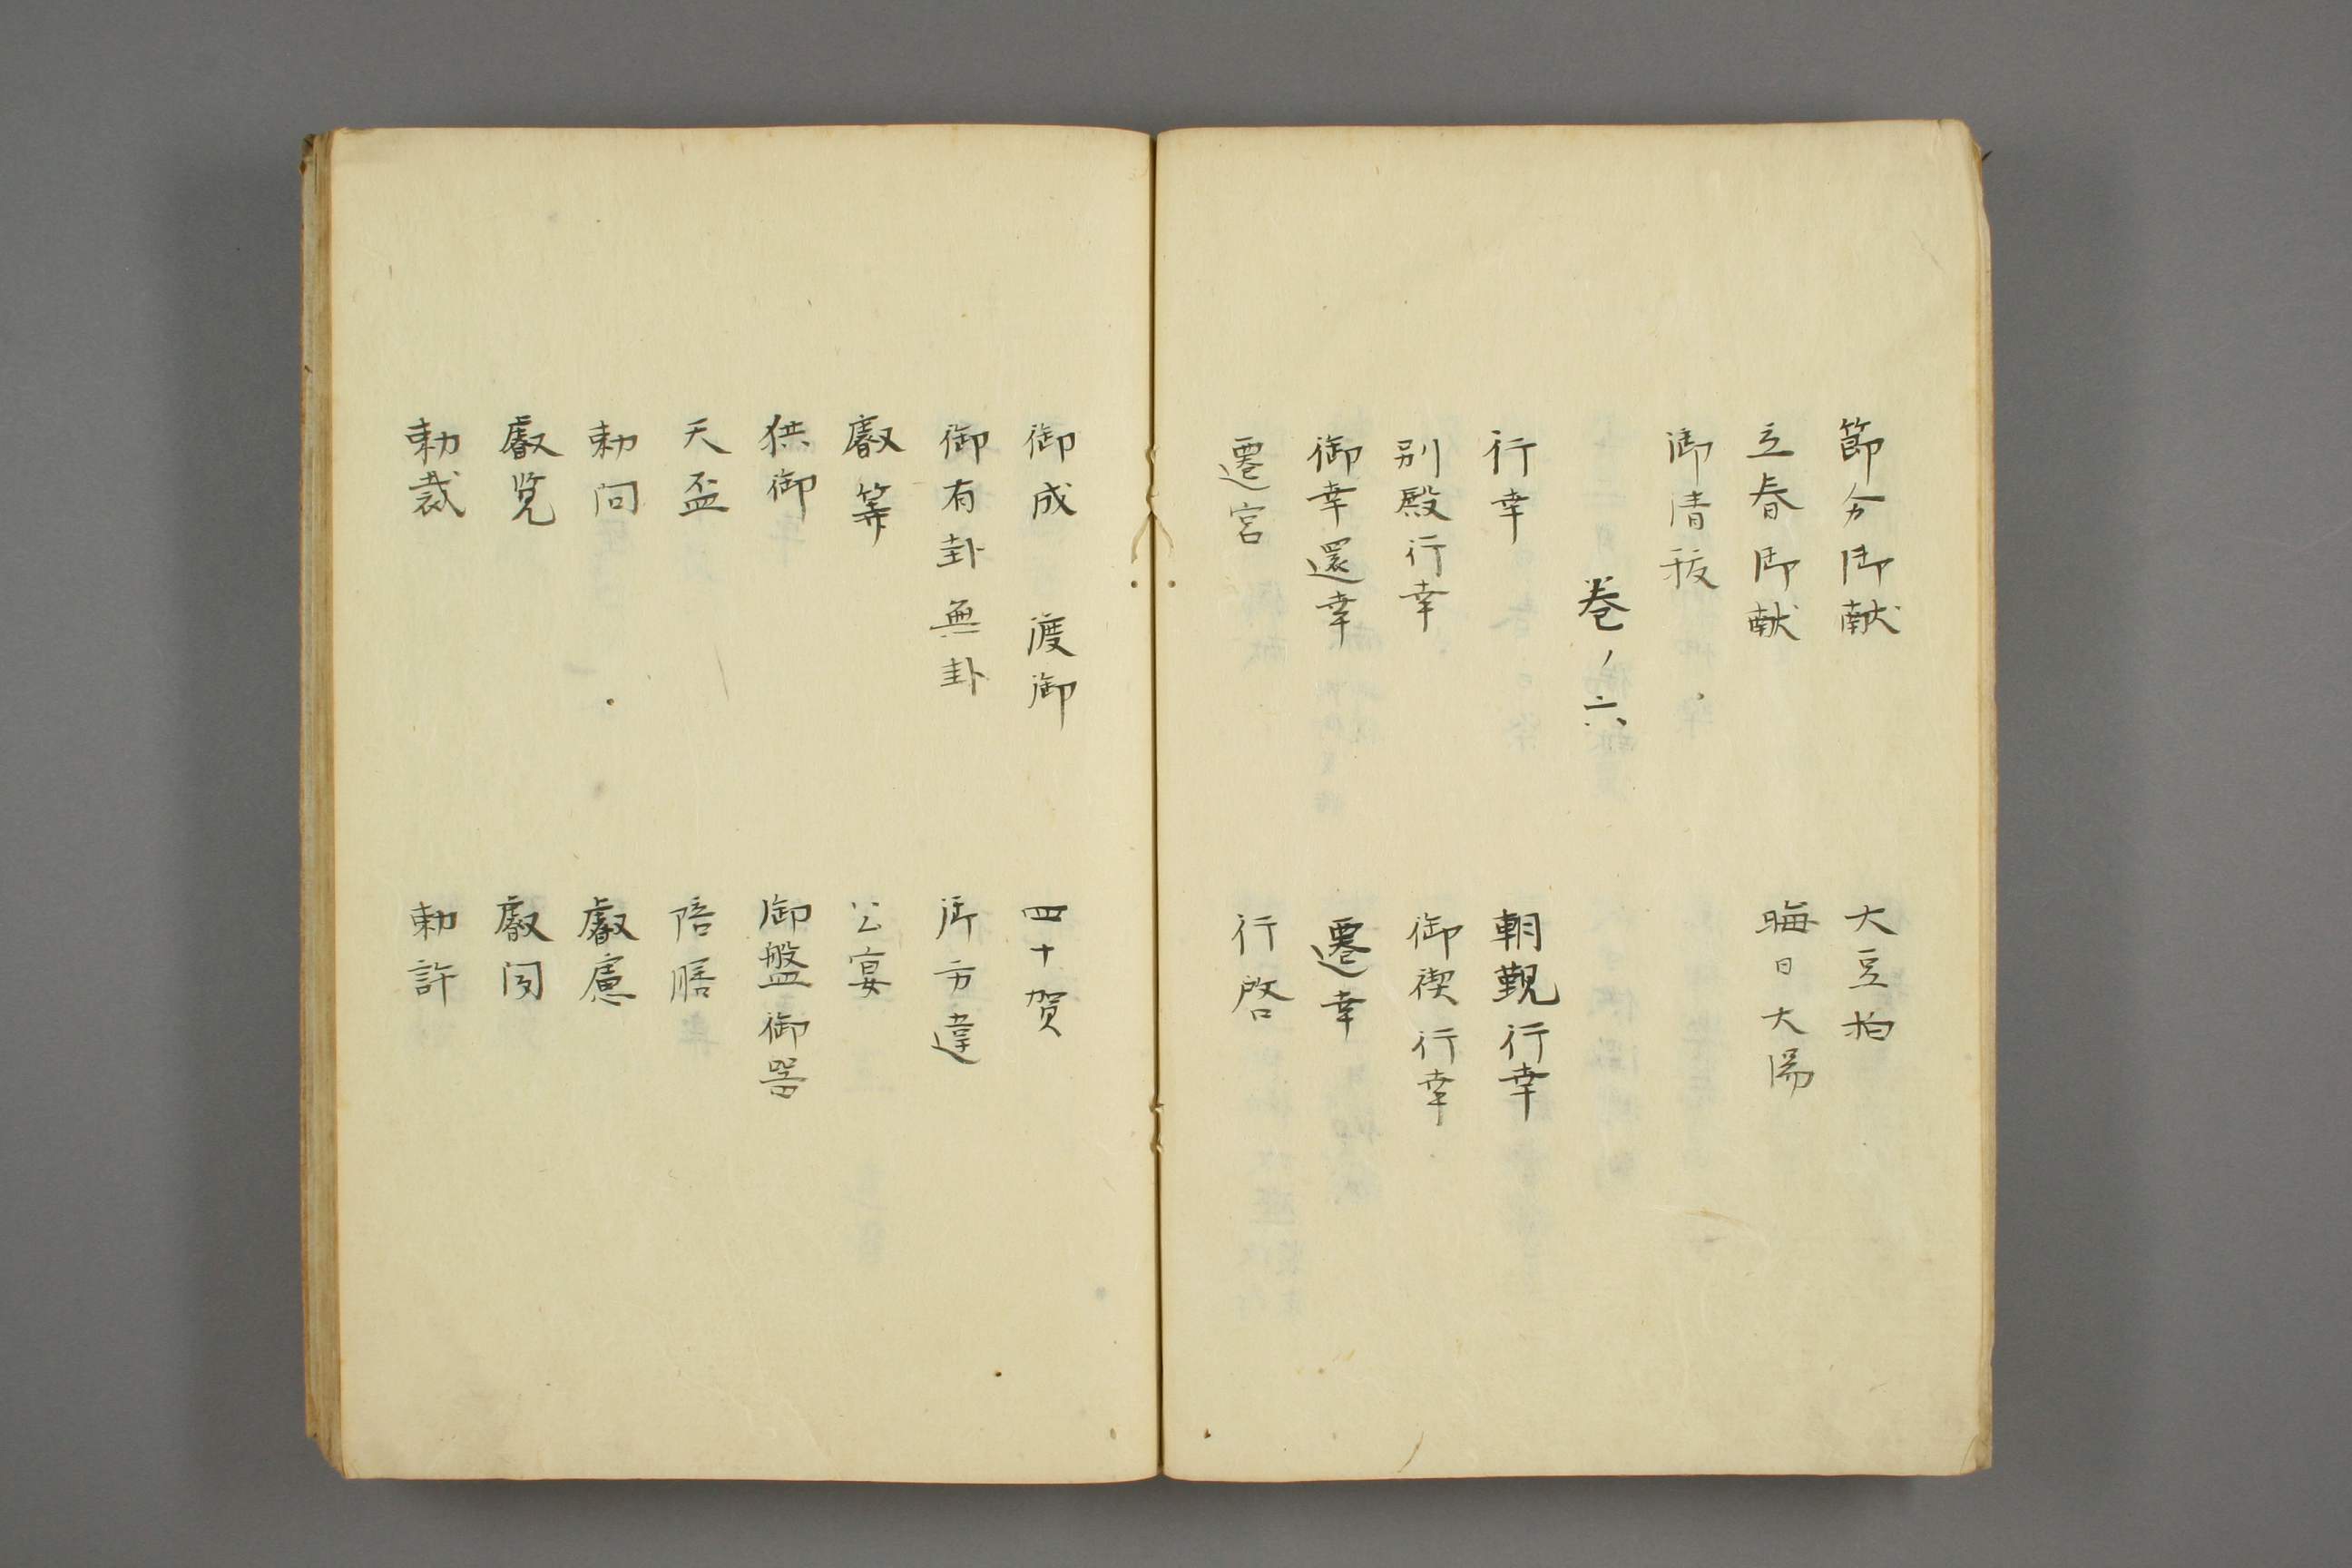 節分御献　大豆拍
立春御献　晦日大湯
御清祓
巻ノ六
行幸　朝覲行幸
別殿行幸　御禊行幸
御幸還幸　遷幸
遷宮　行啓
御成　渡御　四十賀
御有卦無卦　御方違
叡筭　公宴
供御　御盤御器
天盃　陪膳
勅問　叡慮
叡覧　叡聞
勅裁　勅許